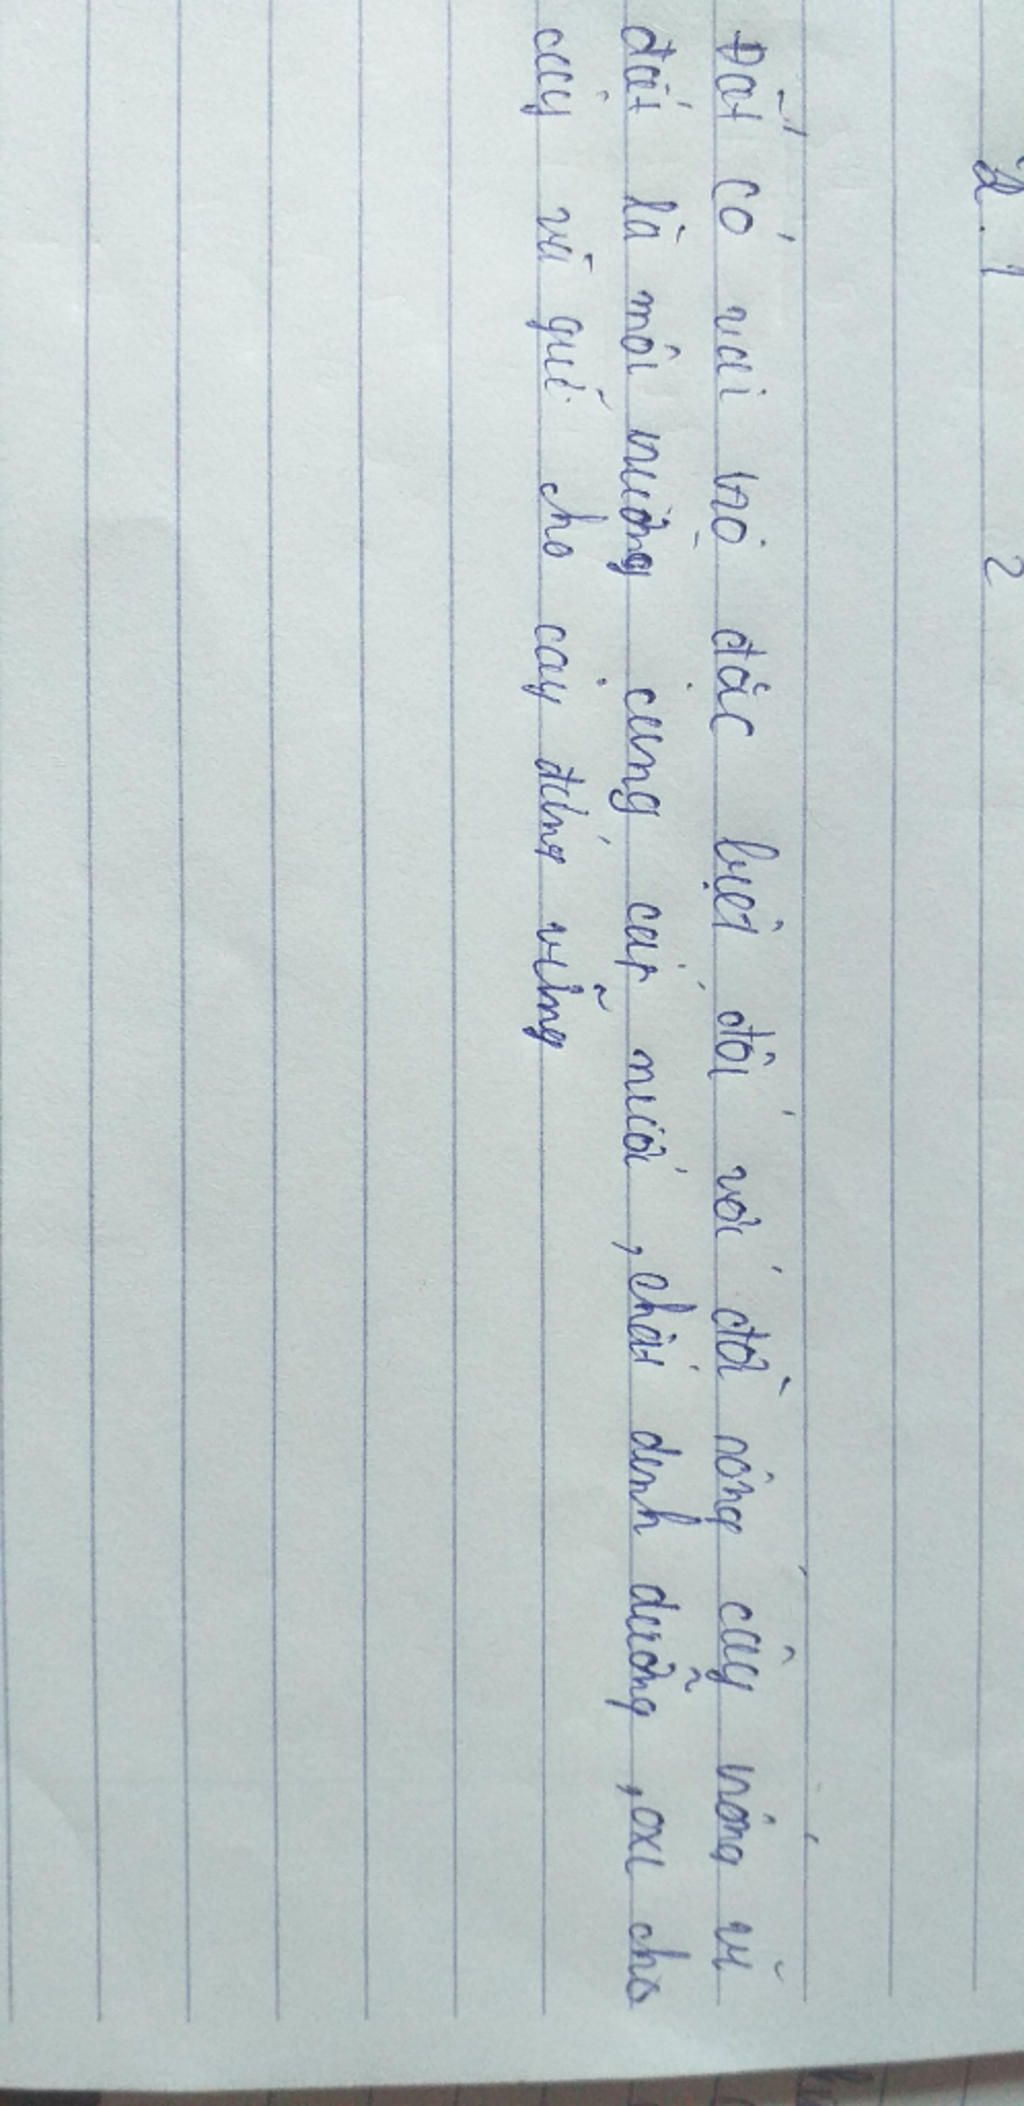 2.1 2
Đất có vai trò đặc biệt đối với đời sống cây trồng vì
đất là môi trường cung cấp nước, chất dinh dưỡng, oxi cho
cây và giữ cho cây đứng vững